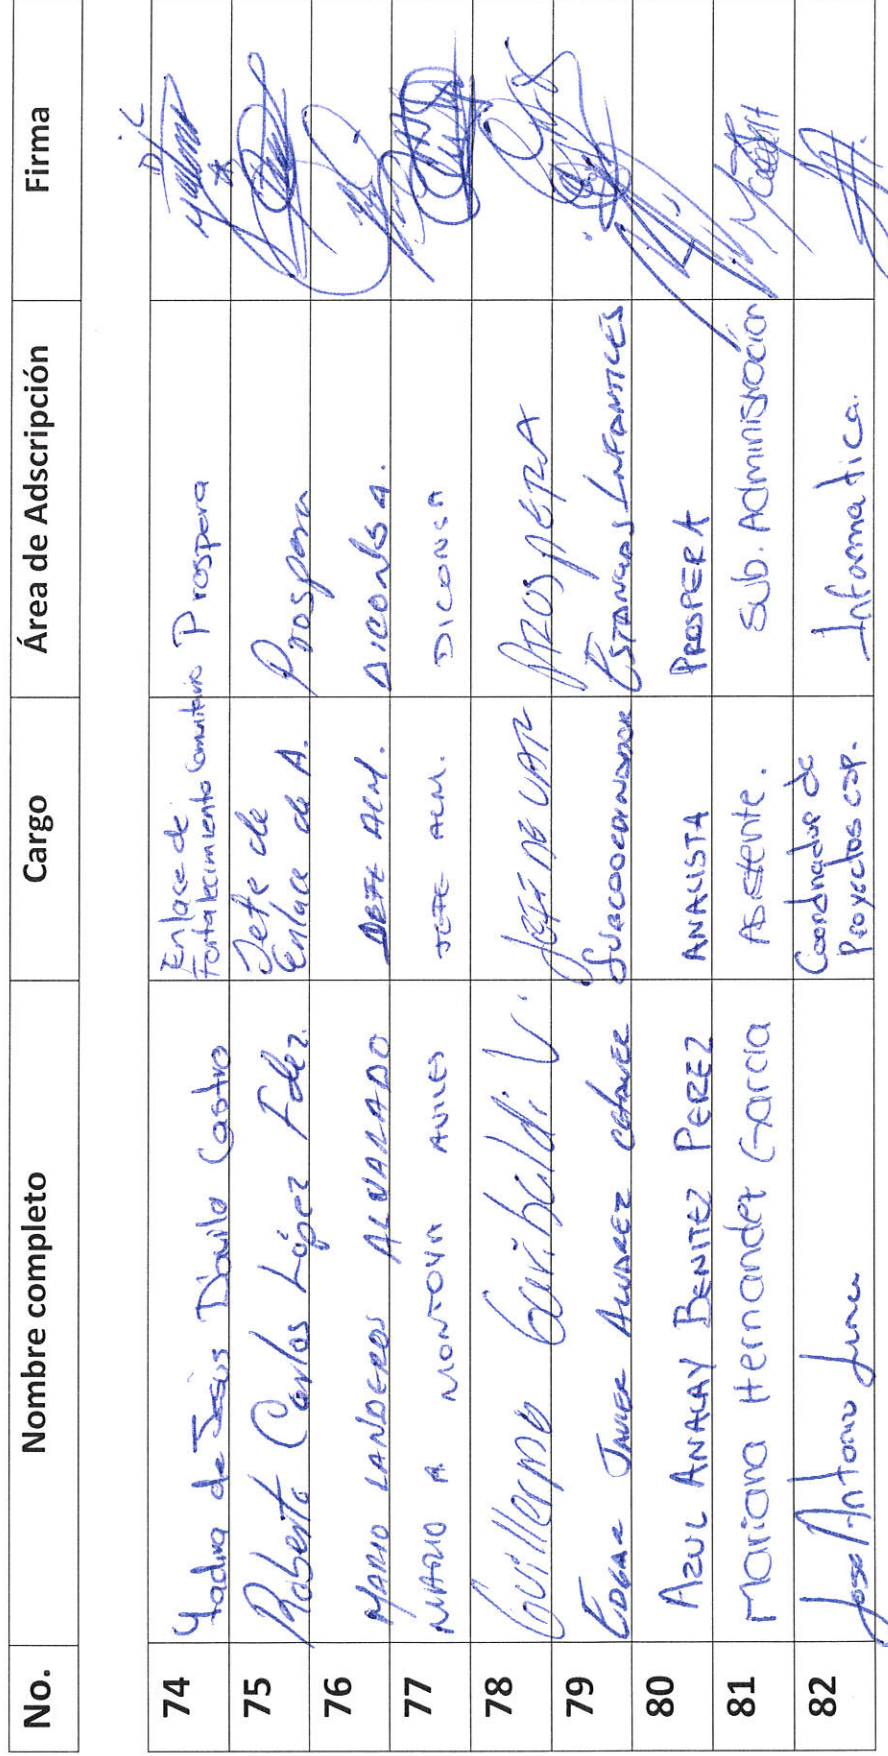 No. Nombre completo Cargo Área de Adscripción Firma
74 Yadira de Jesús Dávila Castro Enlace de Fortalecimiento Comunitario Prospera
75 Roberto Carlos López Fdez. Jefe de Enlace de A. Prospera
76 MARIO LANDEROS ALVARADO JEFE ALM. DICONSA.
77 MARIO A MONTOYA AVILES JEFE ALM. DICONSA
78 Guillermo Garibaldi V. JEFE DE UAR PROSPERA
79 EDGAR JAVIER ALVAREZ SUBCOORDINADOR ESTANCIAS INFANTILES
80 AZUL ANALAY BENITEZ PEREZ ANALISTA PROSPERA
81 Mariana Hernandez Garcia Asistente. Sub. Administración
82 Jose Antonio Luna Coordinador de Proyectos esp. Informatica.